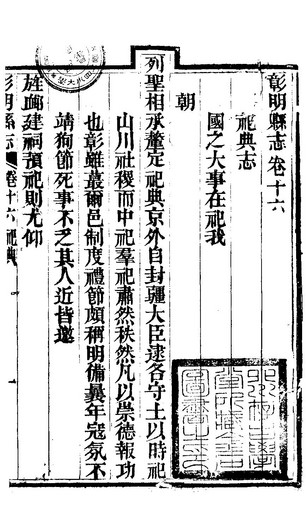 彰明縣志卷十六
祀典志
國之大事在祀我
朝
列聖相承釐定祀典京外自封疆大臣逮各守土以時祀
山川社稷而中祀羣祀肅然秩然凡以崇德報功
也彰雖蕞爾邑制度禮節頗稱明備曩年寇氛不
靖狥節死事不乏其人近皆邀
旌卹建祠預祀則尤仰
彰明縣志 卷十六 祀典